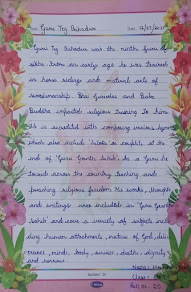 Guru Teg Bahadur Date: 12/07/2021
Guru Teg Bahadur was the ninth guru of
sikhs. From an early age he was trained
in horse riding and martial arts of
swordsmanship. Bhai Gurudas and Baba
Buddha imparted religious training to him.
He is credited with composing various hymns
which also include 'Sloks' or couplets, at the
end of 'Guru Granth Sahib'. As a Guru he
toured across the country teaching and
preaching religious freedom. His works, thoughts
and writings were included in 'Guru Granth
Sahib' and cover a variety of subjects inclu
ding human attachments, nature of God, deli
verance, mind, body, service, death, dignity
and sorrows.
Name:
Class:
Roll no. 20